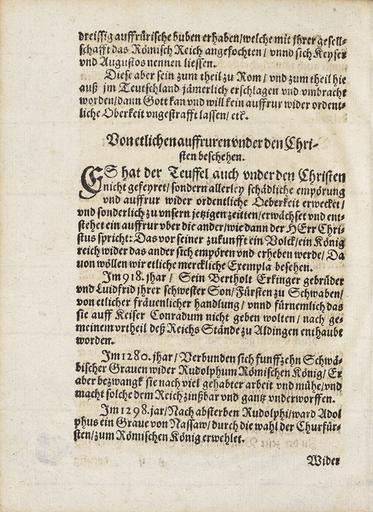 dreissig auffrürische buben erhaben/welche mit jhrer gesell-
schafft das Römisch Reich angefochten/ vnnd sich Keyser
vnd Augustos nennen liessen.
Diese aber sein zum theil zu Rom/ vnd zum theil hie
auß jm Teutschland jämerlich erschlagen vnd vmbracht
worden/dann Gott kan vnd will kein auffrur wider ordent-
liche Oberkeit vngestrafft lassen/ etc.
Von etlichen auffruren vnder den Chri-
sten beschehen.
ES hat der Teuffel auch vnder den Christen
nicht gefeyret/ sondern allerley schädliche empörung
vnd auffrur wider ordentliche Oeberkeit erweckt/
vnd sonderlich zu vnsern jetzigen zeitten/erwächset vnd ent-
stehet ein auffrur vber die ander/wie dann der HErr Chri-
stus spricht: Das vor seiner zukunfft ein Volck/ein König
reich wider das ander sich empören vnd erheben werde/ Da
uon wöllen wir etliche merckliche Exempla besehen.
Im 918. jhar/ Sein Bertholt Erfinger gebrüder
vnd Luidfrid jhrer schwester Son/Fürsten zu Schwaben/
von etlicher fräuenlicher handlung/ vnnd fürnemlich das
sie auff Keiser Conradum nicht geben wolten/ nach ge-
meinem vrtheil deß Reichs Stände zu Aldingen enthaubt
worden.
Im 1280. jhar/Verbunden sich funffzehn Schwä-
bischer Grauen wider Rudolphum Römischen König/ Er
aber bezwangt sie nach viel gehabter arbeit vnd mühe/vnd
macht solche dem Reich zinßbar vnd gantz vnderworffen.
Im 1298. jar/Nach absterben Rudolphi/ward Adol
phus ein Graue von Nassaw/durch die wahl der Churfür-
sten/zum Römischen König erwehlet.
Wider